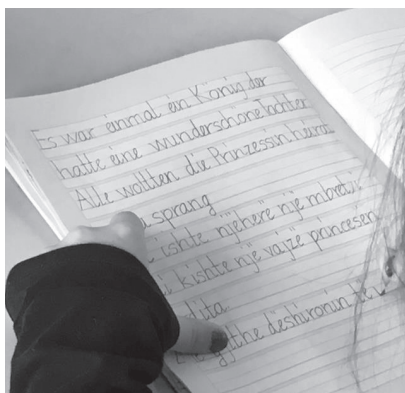 Es war einmal ein König der
hatte eine wunderschöne Tochter
Alle wollten die Prinzessin heirat
sprang
ishte njëherë një mbret
kishte një vajzë princesen
dita
gjithe dëshironin